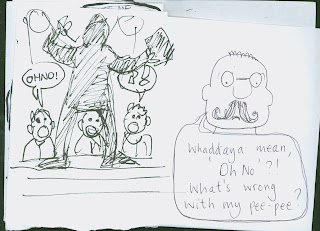 OHNO!
Whaddaya mean,
'Oh No'?!
What's wrong
with my pee-pee?